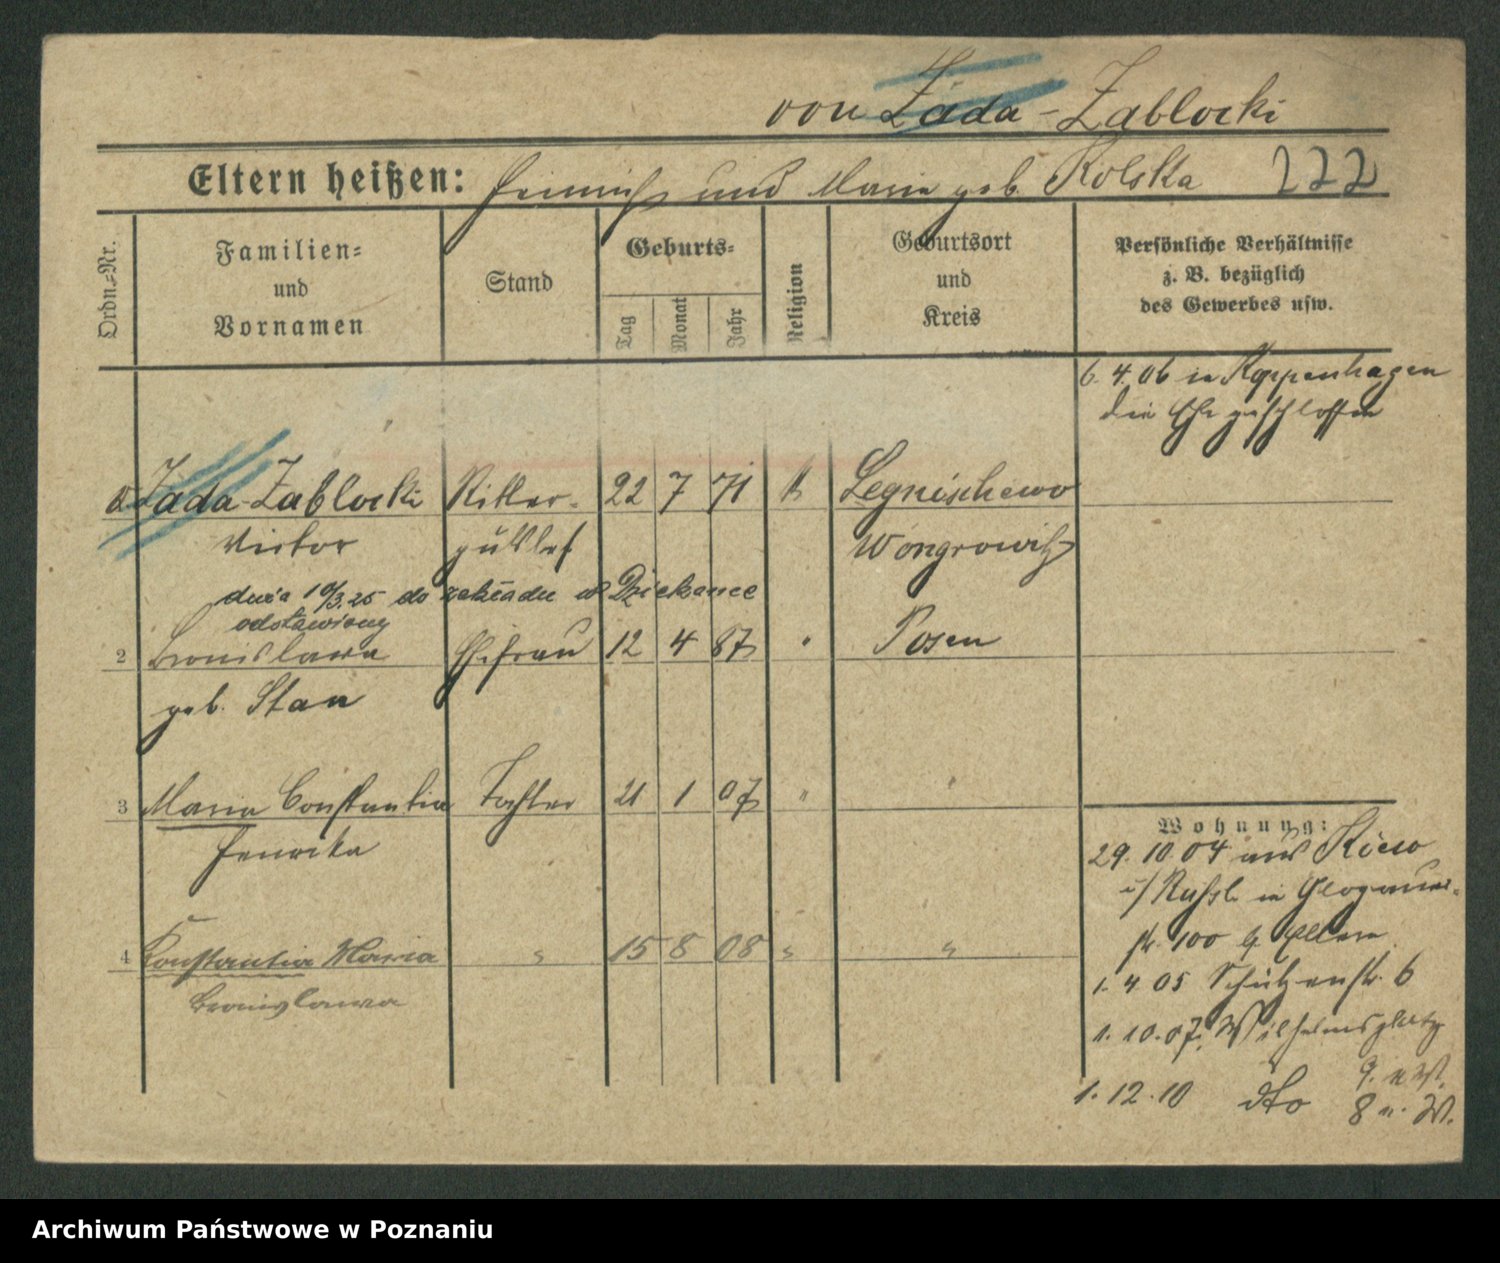 von Zada-Zablocki
Eltern heißen: Heinrich und Maria geb. Kolska 222
Ordn.-Nr.
Familien- und Vornamen
Stand
Geburts-
Tag Monat Jahr
Religion
Geburtsort und Kreis
Persönliche Verhältnisse
z. B. bezüglich
des Gewerbes usw.
6. 4. 06 in Koppenhagen
die Ehe geschlossen
v. Zada-Zablocki Ritter- 22 7 71 k Legnischewo
Victor gutsbes. Wongrowitz
dnia 10/3.25 do zakładu w Dziekance
odstawiony
2 Bronislawa Ehefrau 12 4 87 " Posen
geb. Stan
3 Maria Constantia Tochter 21 1 07 " "
Henrika
4 Konstantia Maria " 15 8 08 " "
Bronislawa
Wohnung:
29. 10. 04 aus Kiew
i/ Rußl. in Glogauer-
str. 100 b/ Eltern
1. 4. 05 Schützenstr. 6
1. 10. 07. Wilhelmsplatz
9. n W.
1. 12. 10 dto 8 n. W.
Archiwum Państwowe w Poznaniu